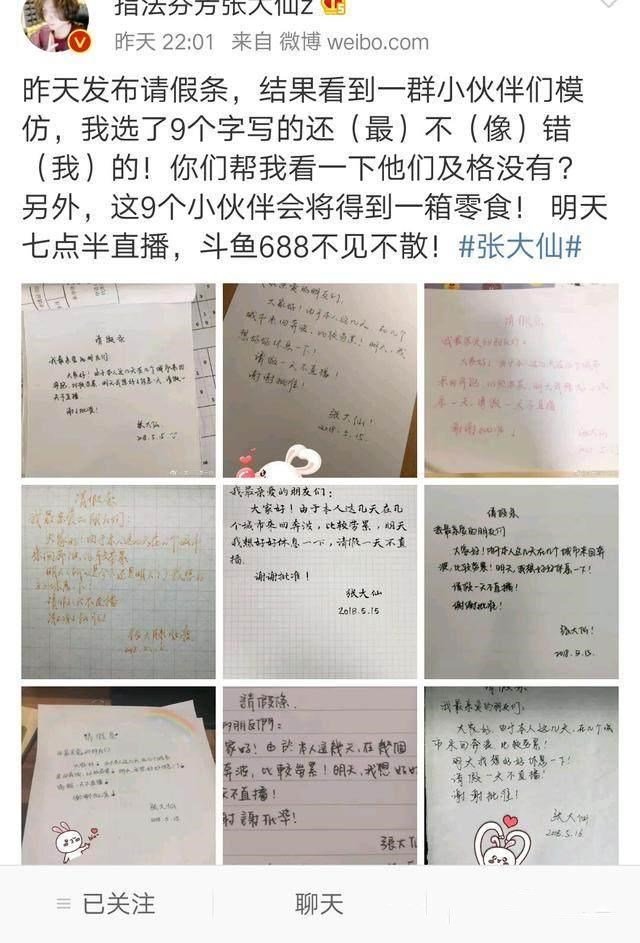 指法芬芳张大仙z
昨天 22:01 来自 微博 weibo.com
昨天发布请假条，结果看到一群小伙伴们模
仿，我选了9个字写的还（最）不（像）错
（我）的！你们帮我看一下他们及格没有？
另外，这9个小伙伴会将得到一箱零食！ 明天
七点半直播，斗鱼688不见不散！#张大仙#
请假条
我最亲爱的朋友们：
大家好！由于本人这几天在几个城市来
回奔波，比较劳累，明天我想好好休息一天，请假一
天不直播
谢谢批准！
张大仙
2018.5.15
亲爱的朋友们，
大家好！由于本人这几天，在几个
城市来回奔波，比较劳累！明天，我
想好好休息一下！
请假一天不直播！
谢谢批准！
张大仙！
2018.5.15
请假条
我最亲爱的朋友们：
大家好！由于本人这几天在几个城市
来回奔波，比较劳累，明天我想好好休
息一天，请假一天不直播
谢谢批准！
张大仙
2018.5.15
请假条
我最亲爱的朋友们：
大家好！由于本人这几天在几个城市
来回奔波，比较劳累
请假一天不直播
谢谢批准！
我最亲爱的朋友们：
大家好！由于本人这几天在几
个城市来回奔波，比较劳累，明天
我想好好休息一下，请假一天不直
播.
谢谢批准！
张大仙
2018.5.15
请假条
我最亲爱的朋友们
大家好！由于本人这几天，在几个城市来回奔
波，比较劳累！明天，我想好好休息一下！
请假一天不直播！
谢谢批准！
张大仙！
2018.5.15
请假条
我最亲爱的朋友们
谢谢批准！
张大仙
2018.5.15
請假條
的朋友們：
家好！由於本人這幾天，在幾個
奔波，比較勞累！明天，我想好好
天不直播！
謝批準！
張大仙
请假条
我最亲爱的朋友们：
大家好，由于本人这几天，在几个城
市来回奔波，比较劳累！
明天我想好好休息一下！
请假一天不直播！
谢谢批准！
张大仙
2018.5.15
已关注
聊天